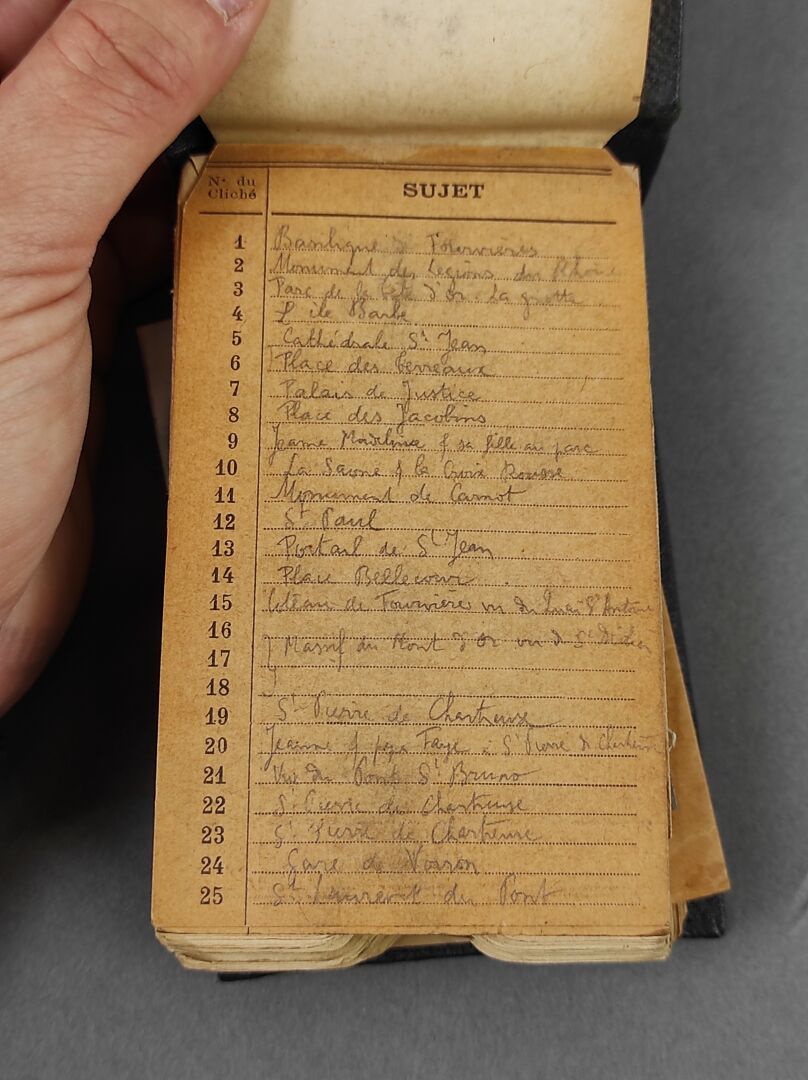 N° du
Cliché
SUJET
1 Basilique de Fourvières
2 Monument des Legions du Rhône
3 Parc de la tête d'or. La grotte
4 L'ile Barbe
5 Cathédrale St Jean
6 Place des Terreaux
7 Palais de Justice
8 Place des Jacobins
9 Jeanne & sa fille au parc
10 La Saone & la Croix Rousse
11 Monument de Carnot
12 St Paul
13 Portail de St Jean
14 Place Bellecour
15 Coteau de Fourvière vu du Quai St Antoine
16
17 Massif du Mont d'Or vu de St Didier
18
19 St Pierre de Chartreuse
20 Jeanne & papa Faye à St Pierre de Chartreuse
21 Vue du Pont St Bruno
22 St Pierre de Chartreuse
23 St Pierre de Chartreuse
24 Gare de Voiron
25 St Laurent du Pont